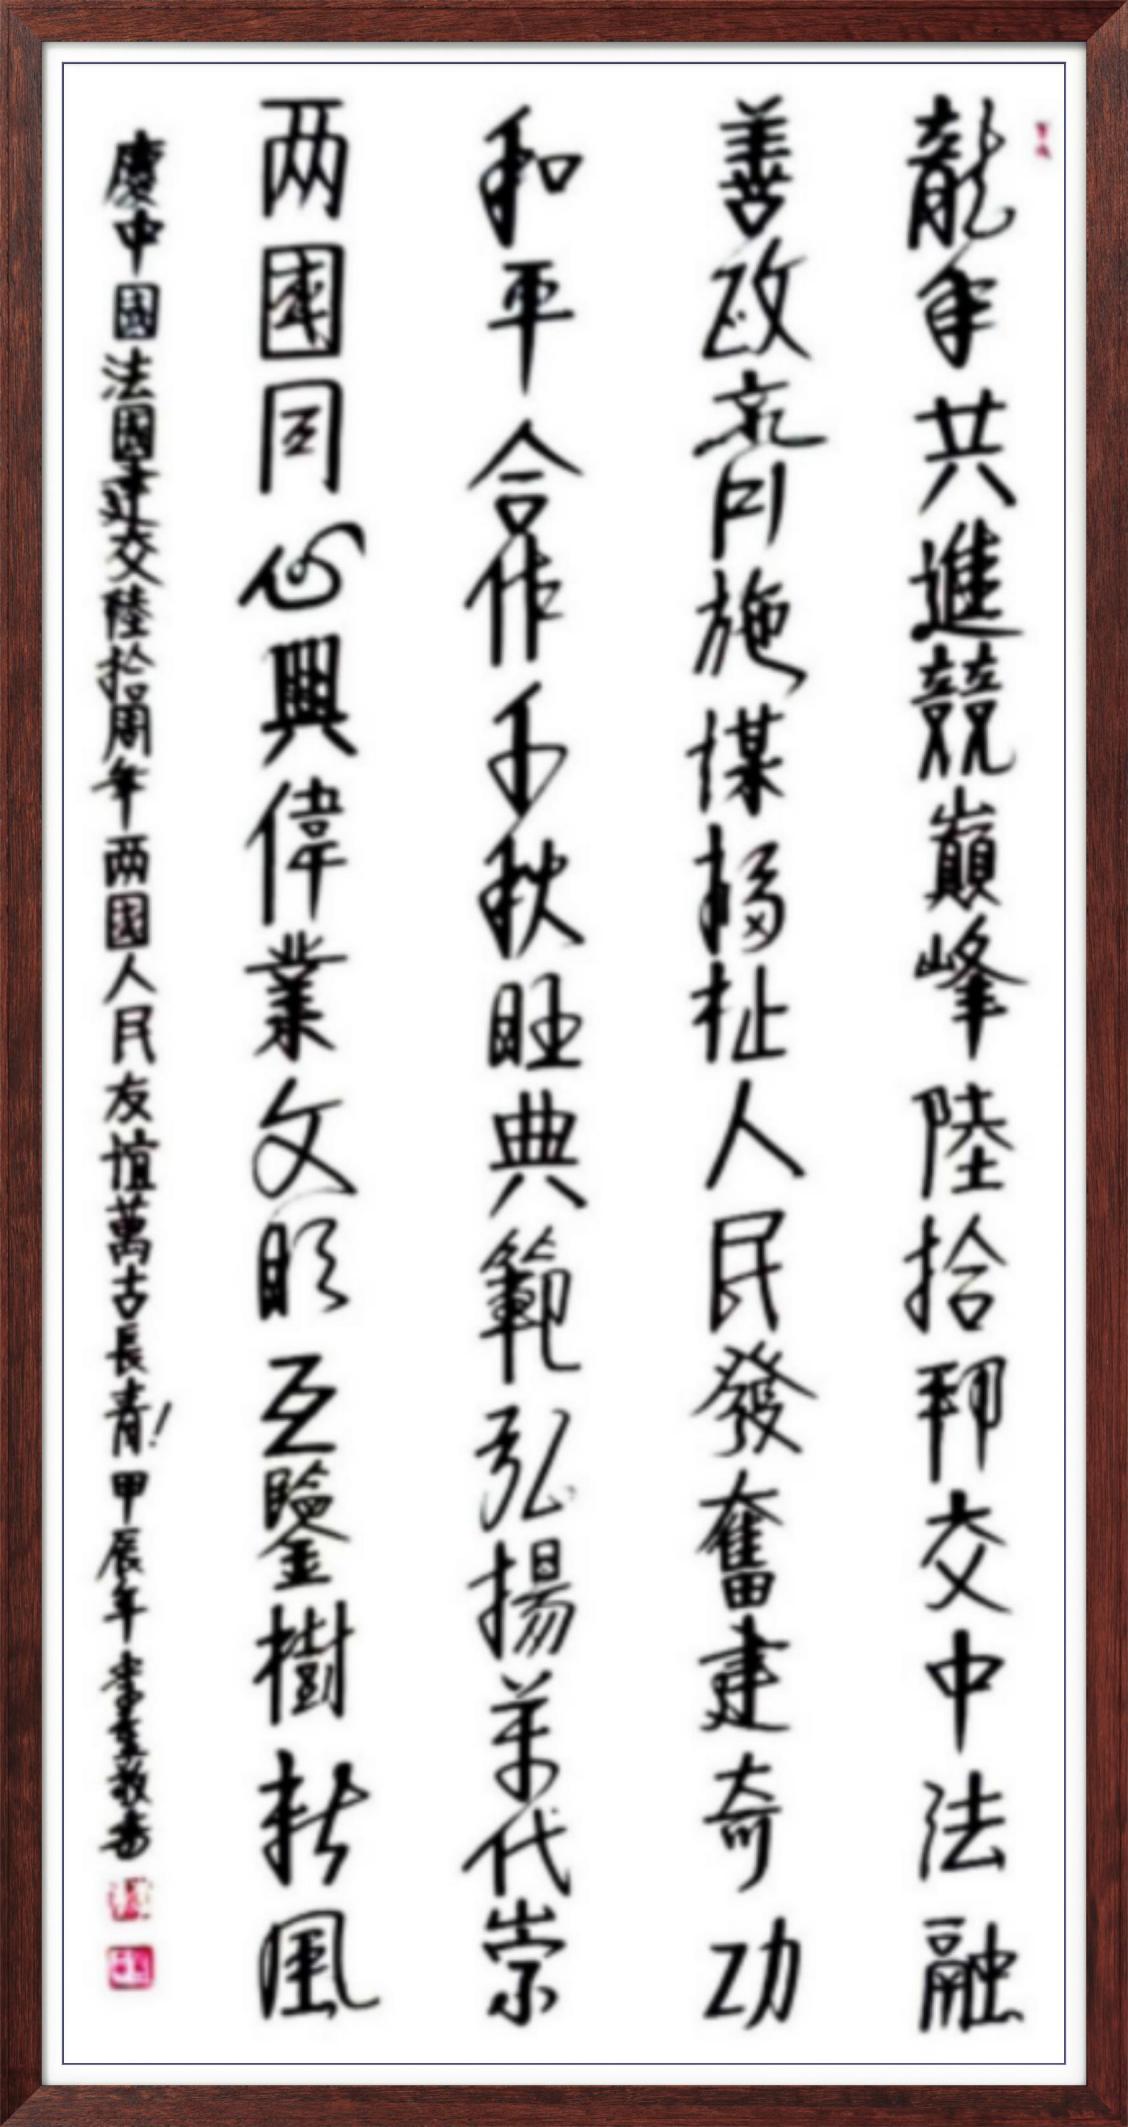 龍年共進競巔峰陸拾邦交中法融
善政齊施謀福祉人民發奮建奇功
和平合作千秋旺典範弘揚萬代崇
两國同心興偉業文明互鑒樹新風
慶中國法國建交陸拾周年两國人民友誼萬古長青！甲辰年李